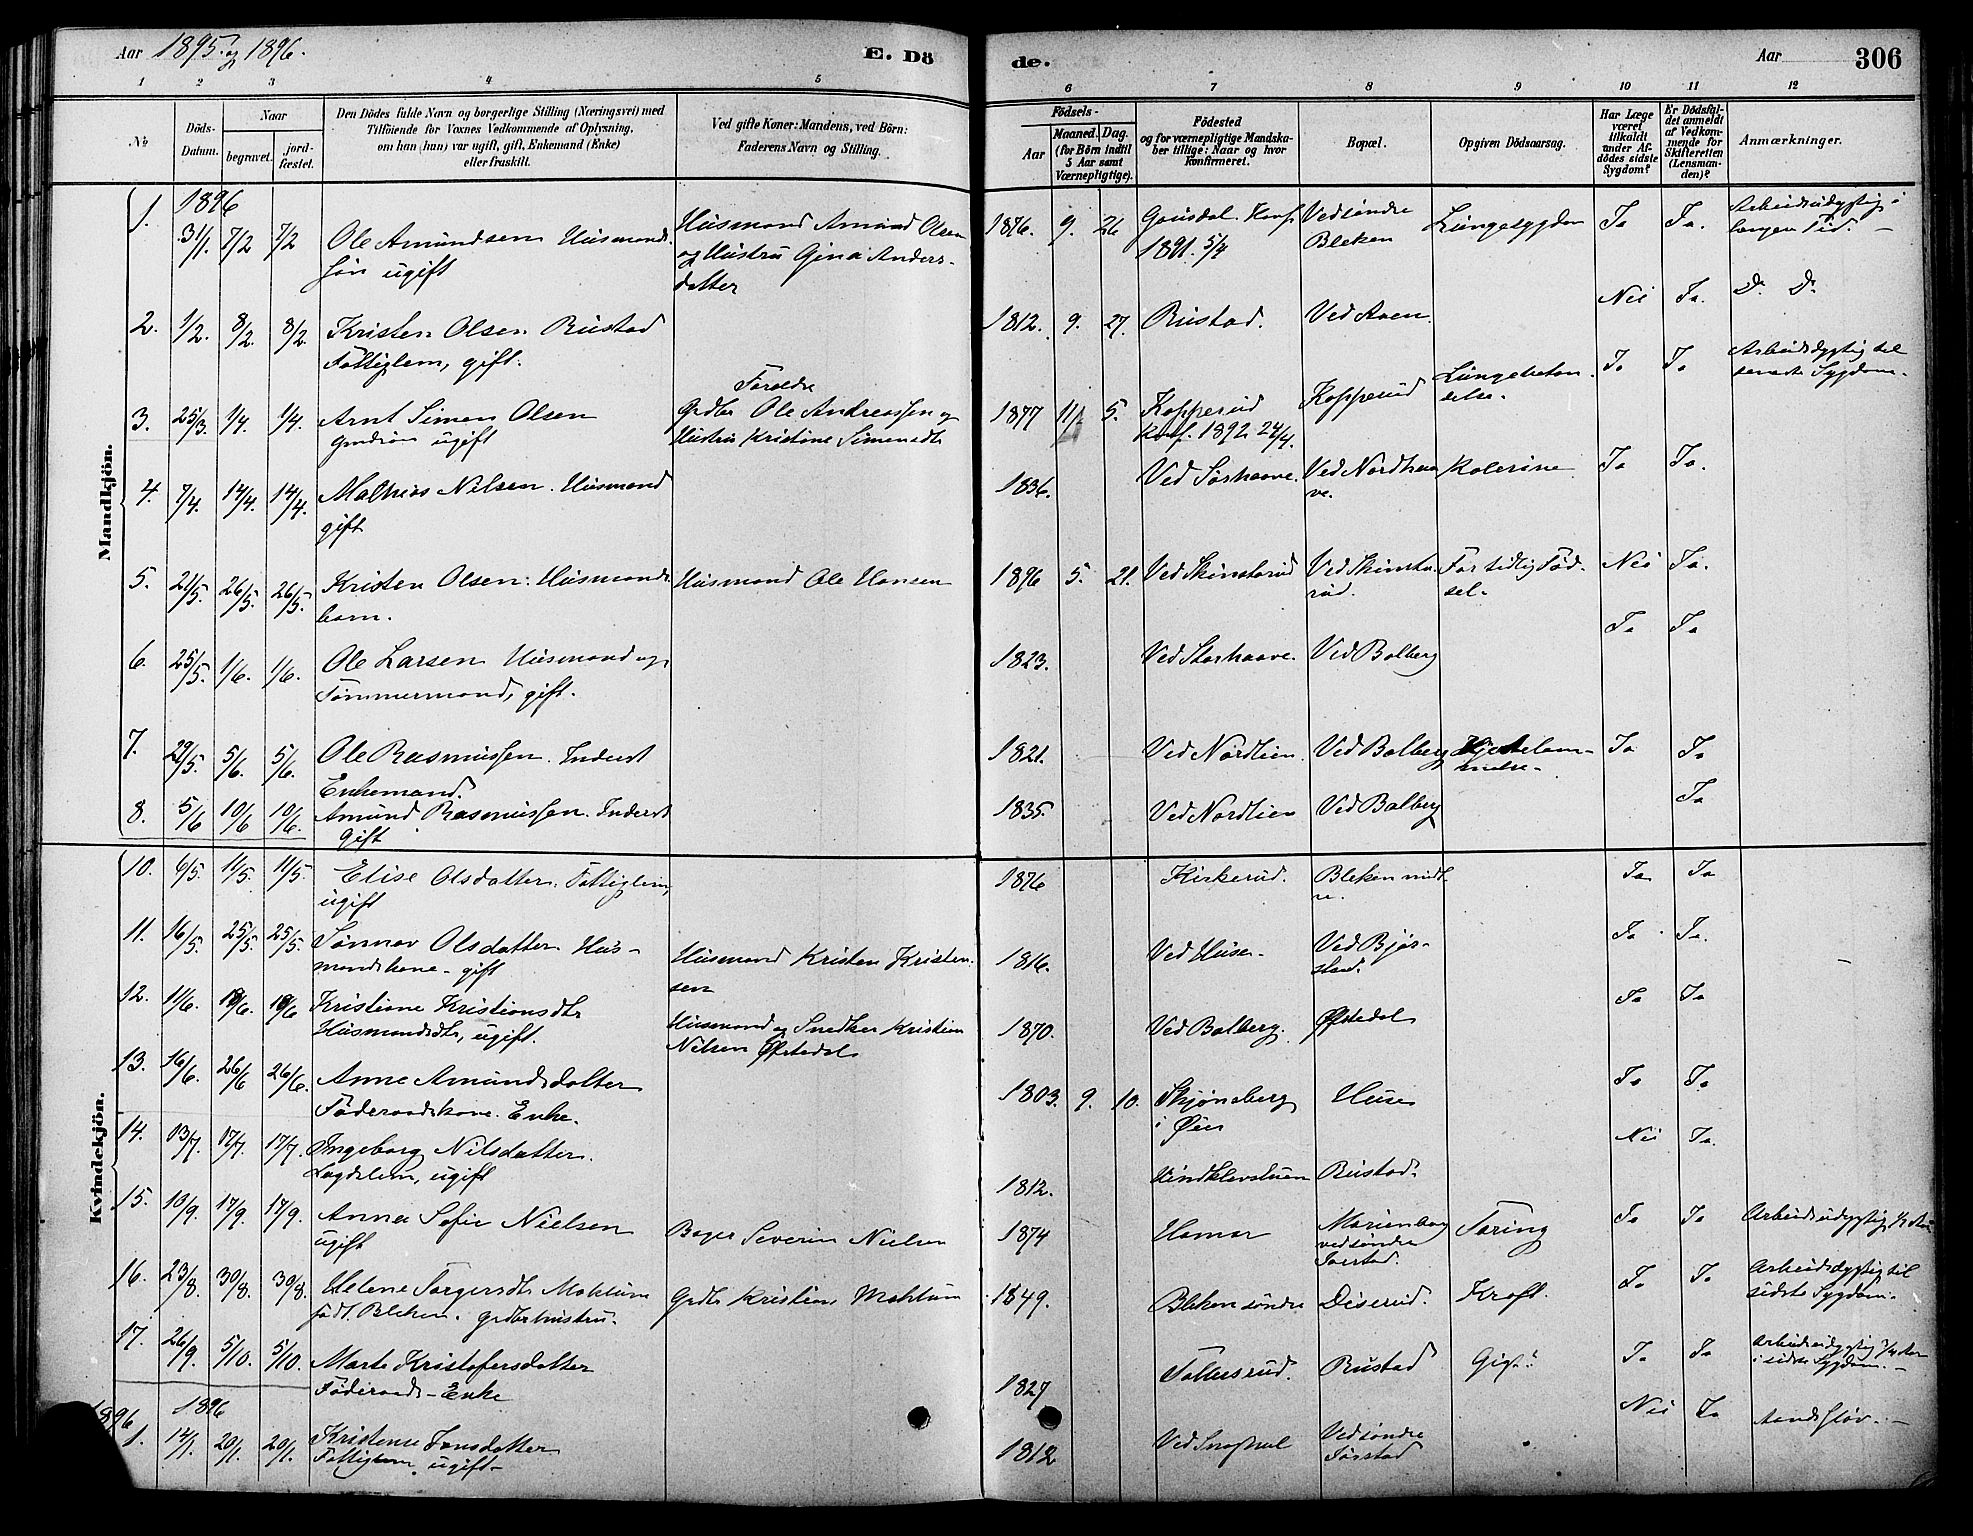 Aar 1895 og 1896.
E. Dö
de.
Aar
306
1 2 3 4 5
6 7 8 9 10 11 12
No
Döds-
Datum.
Naar
begravet.
jord-
fæstet.
Den Dödes fulde Navn og borgerlige Stilling (Næringsvei) med
Tilföiende for Voxnes Vedkommende af Oplysning,
om han (hun) var ugift, gift, Enkemand (Enke)
eller fraskilt.
Ved gifte Koner: Mandens, ved Börn:
Faderens Navn og Stilling.
Födsels-
Aar
Maaned. Dag.
(for Börn indtil
5 Aar samt
Værnepligtige).
Födested
og for værnepligtige Mandska-
ber tillige: Naar og hvor
konfirmeret.
Bopæl.
Opgiven Dödsaarsag.
Har Læge
været
tilkaldt
under Af-
dödes sidste
Sygdom?
Er Dödsfal-
det anmeldt
af Vedkom-
mende for
Skifteretten
(Lensman-
den)?
Anmærkninger.
Mandkjön.
1896
1. 31/1. 7/2 7/2 Ole Amundsen Husmands
søn ugift
Husmand Amund Olsen
og Hustru Gina Anders-
datter
1876. 9. 26 Gausdal. Konf.
1891. 5/4
Ved søndre
Bleken
Lungesygdom Ja Ja. Arbeidsudygtig i
lengen Tid. -
2. 1/2. 8/2. 8/2. Kristen Olsen Rustad
Fattiglem, gift.
1812. 9. 27. Rustad. Ved Aaen. Nei Ja. D. D.
3. 25/3. 1/4. 1/4. Arnt Simen Olsen
ugift
Forældre
Grdbr Ole Andreassen og
Hustru Kristine Simensdt
1877 11 5. Kopperud
Konf. 1892 24/4.
Kopperud
Lungebetæn
delse.
Ja Ja Arbeidsdygtig til
Sygdom.
4. 7/4. 14/4. 14/4. Mathias Nilsen. Husmand
gift
1836. Ved Sørhaave. Ved Nordhaa
ve.
Kolerine Ja Ja.
5. 21/5. 26/5. 26/5. Kristen Olsen. Husmands
barn.
Husmand Ole Hansen
1896 5. 21. Ved Skinstarud Ved Skinsta
rud.
For tidlig Fød-
sel.
Nei Ja.
6. 25/5. 1/6. 1/6. Ole Larsen Husmand og
Tømmermand, gift.
1823. Ved Storhaave. Ved Balberg Ja Ja
7. 29/5. 5/6. 5/6. Ole Rasmussen. Inderst
Enkemand.
1821. Ved Nordlien. Ved Balberg Ja Ja
8. 5/6 10/6 10/6. Amund Rasmussen. Inderst
gift
1835. Ved Nordlien Ved Balberg Ja
Kvindekjön.
10. 6/5. 11/5. 11/5. Elise Olsdatter. Fattiglem,
ugift
1876 Kirkerud. Bleken midt
re.
Ja Ja
11. 16/5. 25/5. 25/5. Sønnav Olsdatter Hus-
mandskone - gift
Husmand Kristen Kristen
sen
1816. Ved Huse- Ved Bjør-
stad.
Ja Ja.
12. 11/6. 18/6. 18/6 Kristiane Kristiansdtr
Husmandsdtr, ugift.
Husmand og Snedker Kristian
Nilsen Øfstedal
1870. Ved Balberg. Øfstedal Ja Ja
13. 16/6. 26/6 26/6. Anne Amundsdatter
Føderaadskone. Enke.
1803. 9. 10. Skjønsberg
i Øier
Huse Ja Ja
14. 13/7. 17/7. 17/7. Ingeborg Nilsdatter.
Lægdslem, ugift
1812. Rustad. Nei Ja.
15. 10/9. 17/9. 17/9. Anna Sofie Nielsen
ugift
Bager Severin Nielsen
1874 Hamar Marienborg
ved søndre
Jørstad.
Tæring Ja Ja Arbeidsudygtig ½ Aar
16. 23/8. 30/8. 30/8. Helene Torgersdt. Mohlum
født Bleken. Grdbrhustru.
Grdbr Kristian Mohlum
1849. Bleken søndre Diserud. Kræft. Ja Ja Arbeidsdygtig til
sidste Sygdom.
17. 26/9. 5/10. 5/10. Marte Kristofersdatter
Føderaads-Enke
1827 Rustad Gigt Ja Ja Arbeidsudygtig ¾ Aar
i sidste Sygdom. -
1896 1896
1. 14/1. 20/1. 20/1. Kristense Jonsdatter
Fattiglem, ugift-
1812 Ved søndre
Jørstad
Nei Ja Aandssløv. -